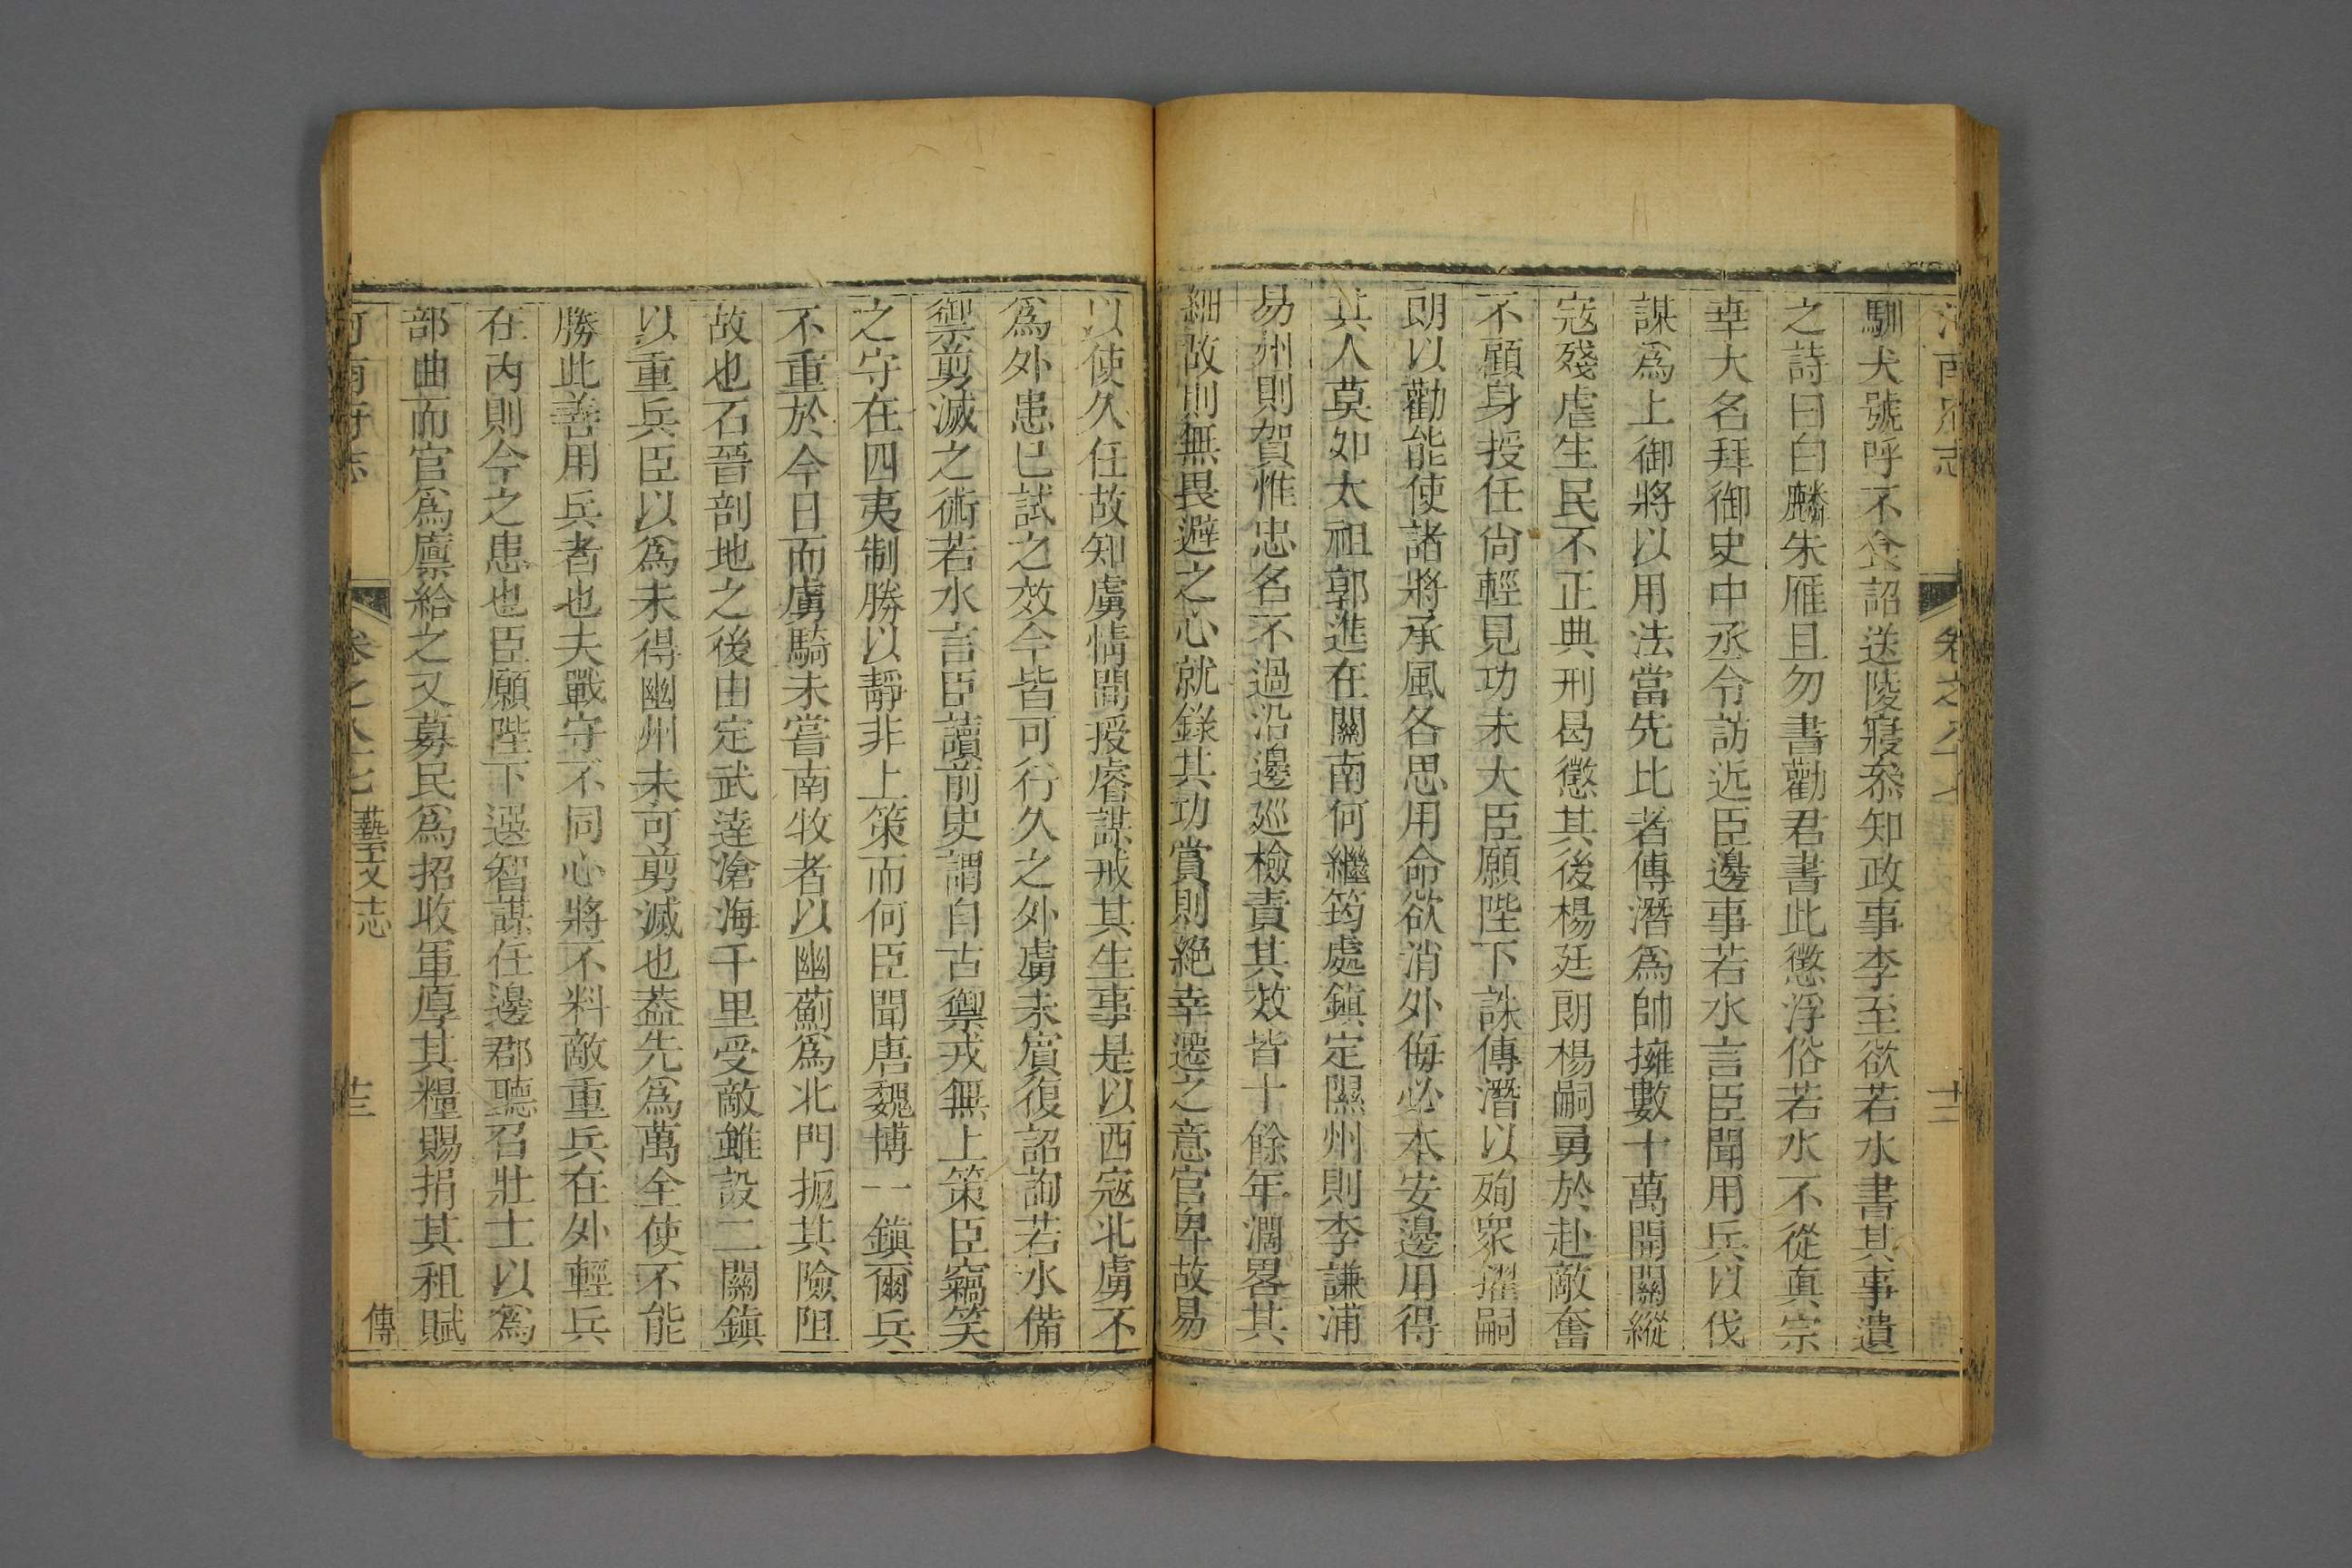 馴犬號呼不食詔送陵寢叅知政事李至欲若水書其事遺
之詩曰白麟朱雁且勿書勸君書此懲浮俗若水不從真宗
幸大名拜御史中丞令訪近臣邊事若水言臣聞用兵以伐
謀爲上御將以用法當先比者傅潛爲帥擁數十萬開關縱
寇殘虐生民不正典刑曷懲其後楊廷朗楊嗣勇於赴敵奮
不顧身授任尙輕見功未大臣願陛下誅傅潛以殉衆擢嗣
朗以勸能使諸將承風各思用命欲消外侮必本安邊用得
其人莫如太祖郭進在關南何繼筠處鎮定隰州則李謙浦
易州則賀惟忠名不過沿邊廵檢責其效皆十餘年濶畧其
細故則無畏避之心就錄其功賞則絶幸遷之意官卑故易
以使久任故知虜情間授睿謀戒其生事是以西寇北虜不
爲外患已試之效今皆可行久之外虜未賓復詔詢若水備
禦剪滅之術若水言臣讀前史謂自古禦戎無上策臣竊笑
之守在四夷制勝以靜非上策而何臣聞唐魏博一鎮爾兵
不重於今日而虜騎未嘗南牧者以幽薊爲北門扼其險阻
故也石晉剖地之後由定武達滄海千里受敵雖設二關鎮
以重兵臣以爲未得幽州未可剪滅也葢先爲萬全使不能
勝此善用兵者也夫戰守不同心將不料敵重兵在外輕兵
在內則今之患也臣願陛下選智謀任邊郡聽召壯士以爲
部曲而官爲廩給之又募民爲招收軍厚其糧賜捐其租賦
河南府志 卷之八十七 藝文志 傳 十三